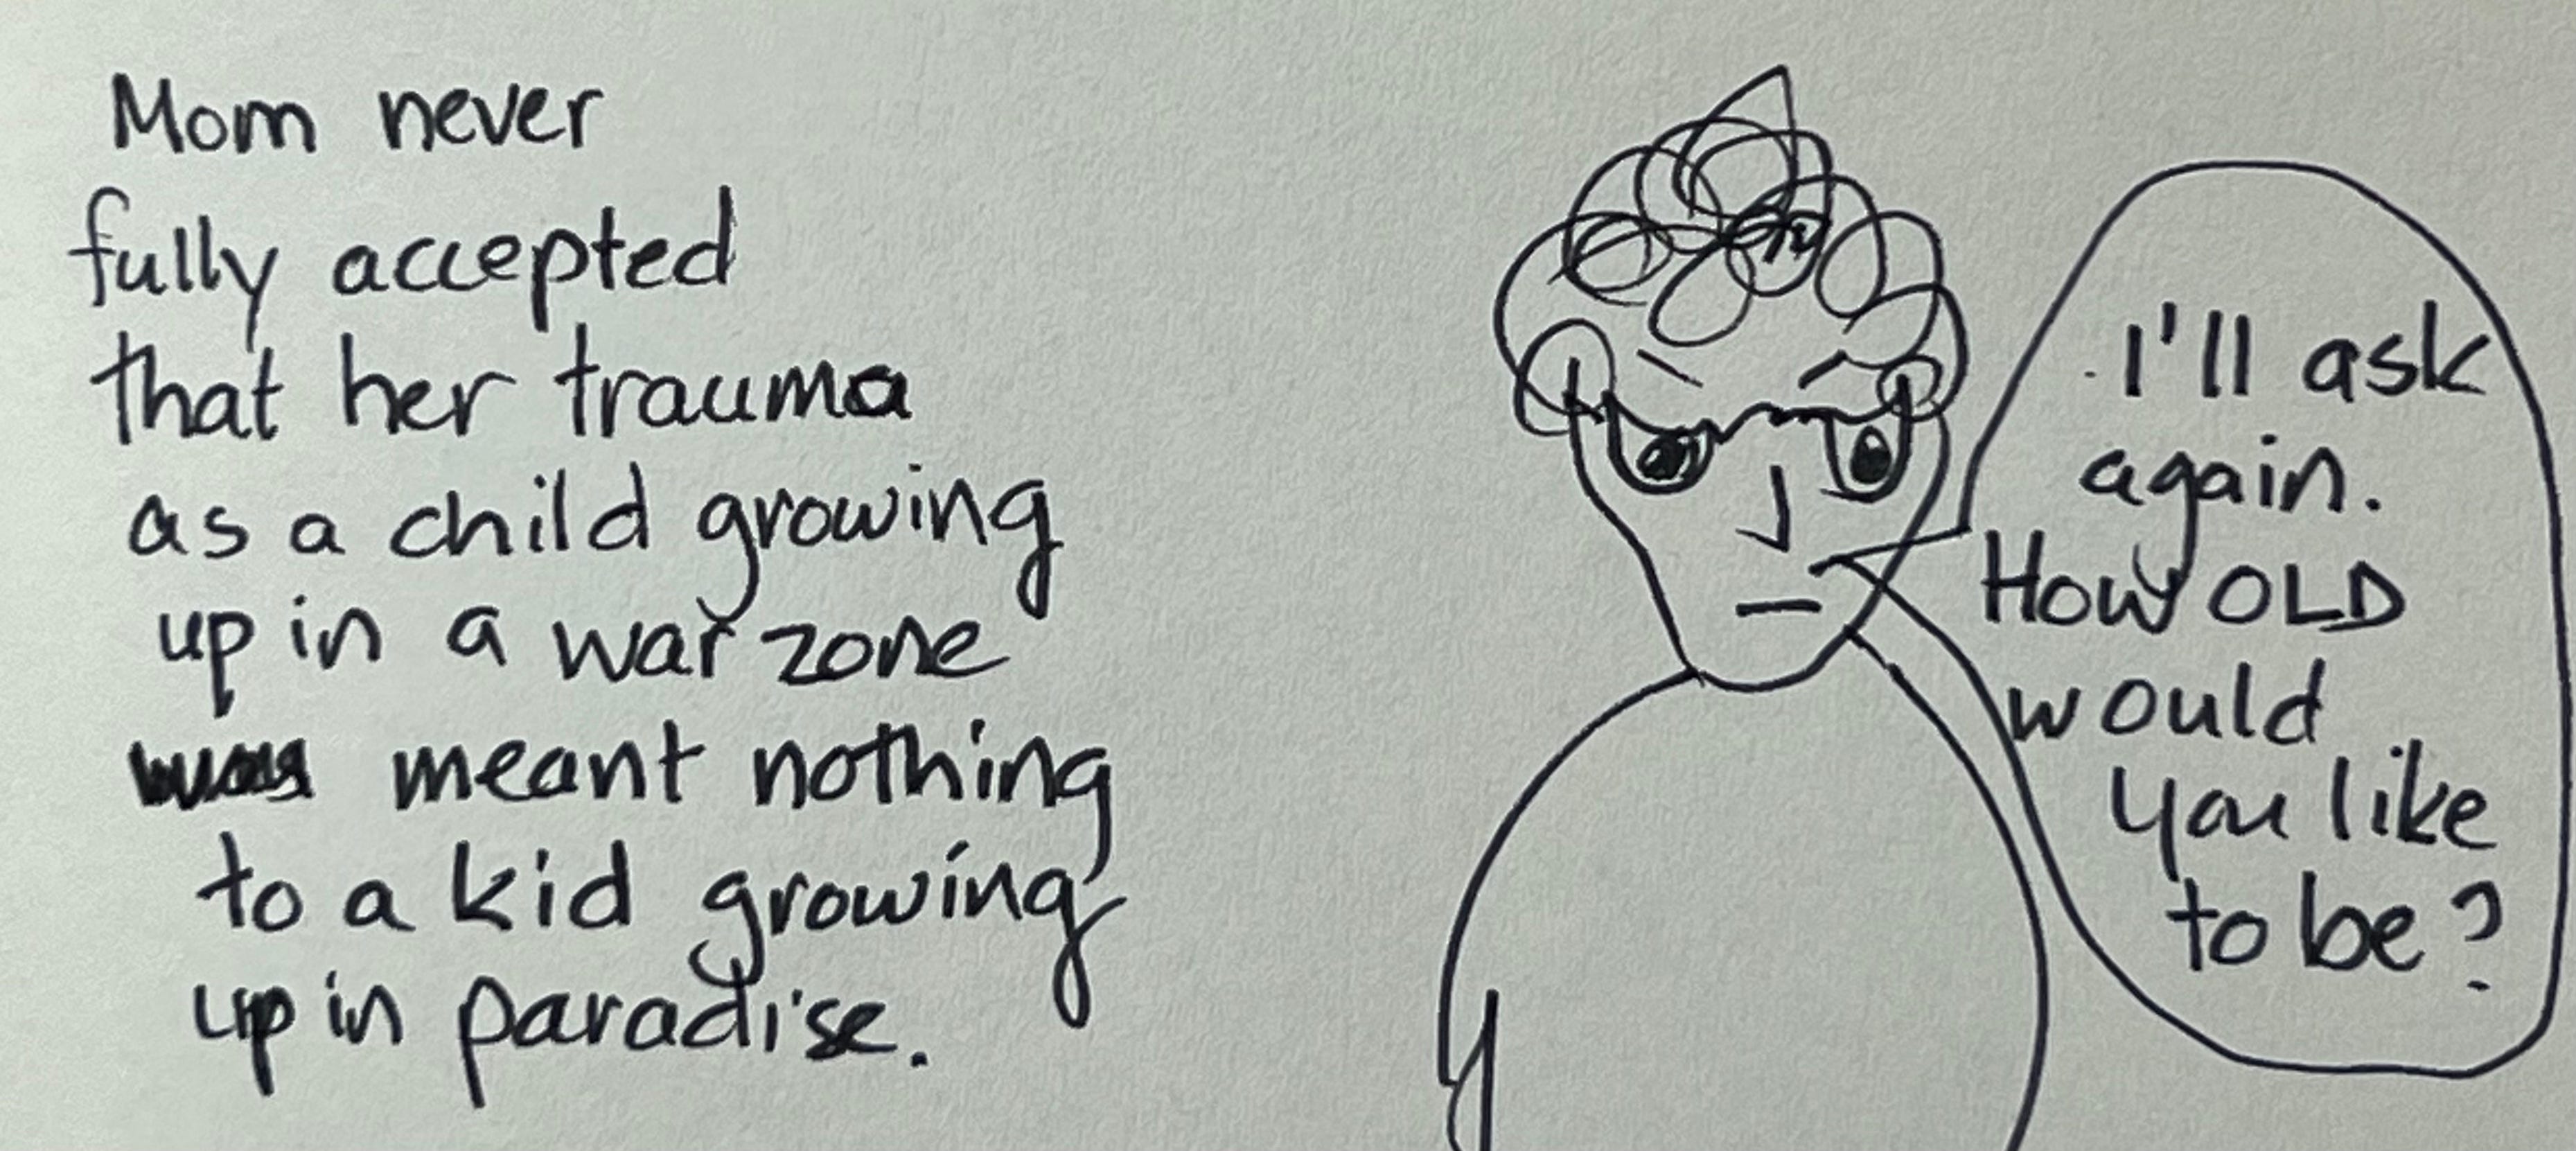 Mom never
fully accepted
that her trauma
as a child growing
up in a war zone
meant nothing
to a kid growing
up in paradise.
I'll ask
again.
How OLD
would
you like
to be?